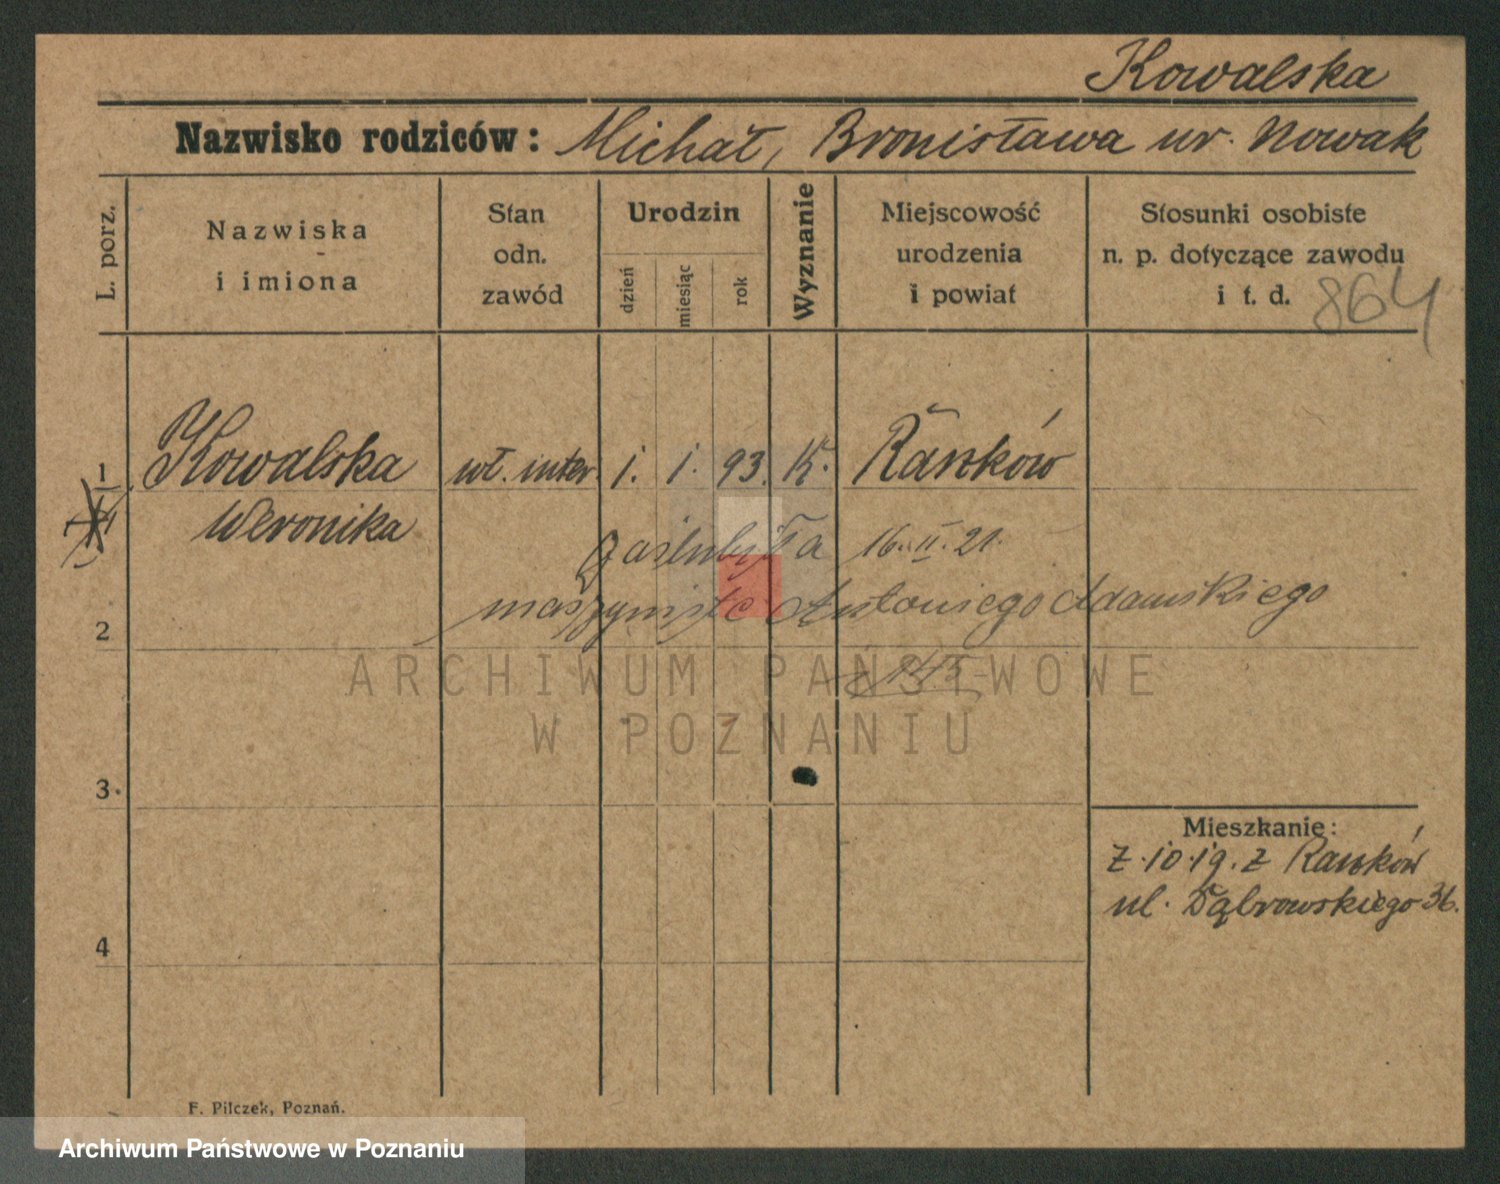 Kowalska
Nazwisko rodziców: Michał, Bronisława ur. Nowak
L. porz.
Nazwiska
i imiona
Stan
odn.
zawód
Urodzin
dzień
miesiąc
rok
Wyznanie
Miejscowość
urodzenia
i powiat
Stosunki osobiste
n. p. dotyczące zawodu
i t. d.
864
1 Kowalska wł. inter. 1. 1. 93. K. Raszków
Weronika
zaślubiła 16.II.21.
maszynistę Antoniego Adamskiego
2
ARCHIWUM PAŃSTWOWE
W POZNANIU
3.
Mieszkanie:
2.10.19. z Raszków
ul. Dąbrowskiego 36.
4
F. Pilczek, Poznań.
Archiwum Państwowe w Poznaniu